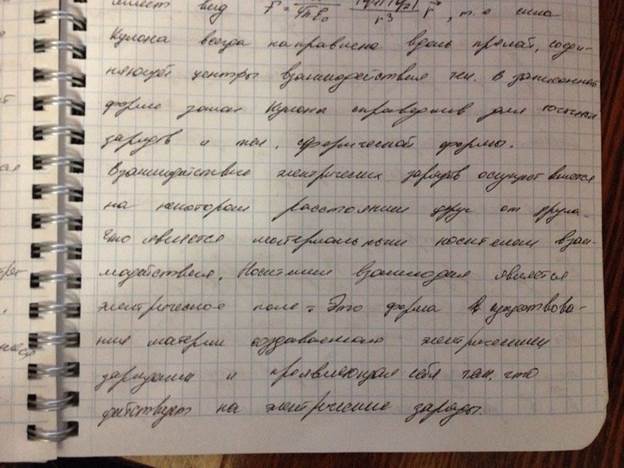 имеет вид F = 1/4πε₀ |q₁||q₂|/r³ r, т.е сила
Кулона всегда направлена вдоль прямой, соеди-
няющей центры взаимодействия тел. В записанной
форме закон Кулона справедлив для точечных
зарядов и тел. сферической формы.
Взаимодействие электрических зарядов осуществляется
на некотором расстоянии друг от друга.
Что является материальным носителем взаи-
модействия. Носителем взаимодия является
электрическое поле. Это форма существова-
ния материи создаваемого электрическими
зарядами и проявляющая себя тем, что
действует на электрические заряды.